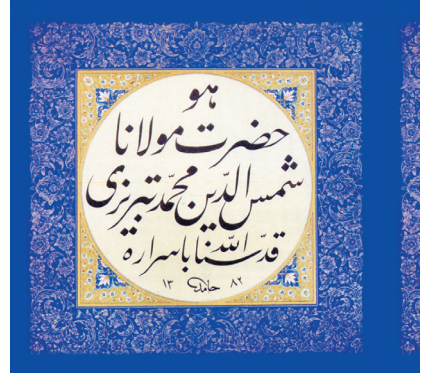 هو
حضرت مولانا
شمس الدّين محمّد تبريزى
قدّسنا اللّٰه باسراره
حامد ١٣٨٢